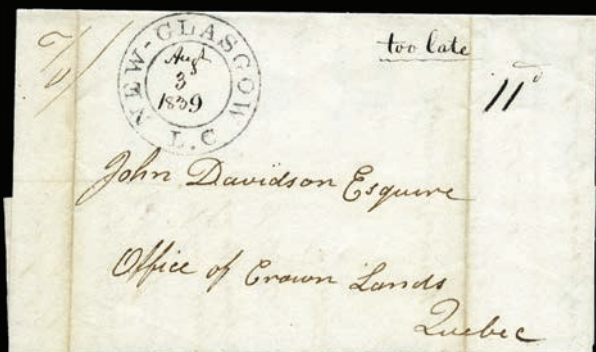 NEW-GLASGOW
Augt
3
1839
L.C
too late
11d
John Davidson Esquire
Office of Crown Lands
Quebec